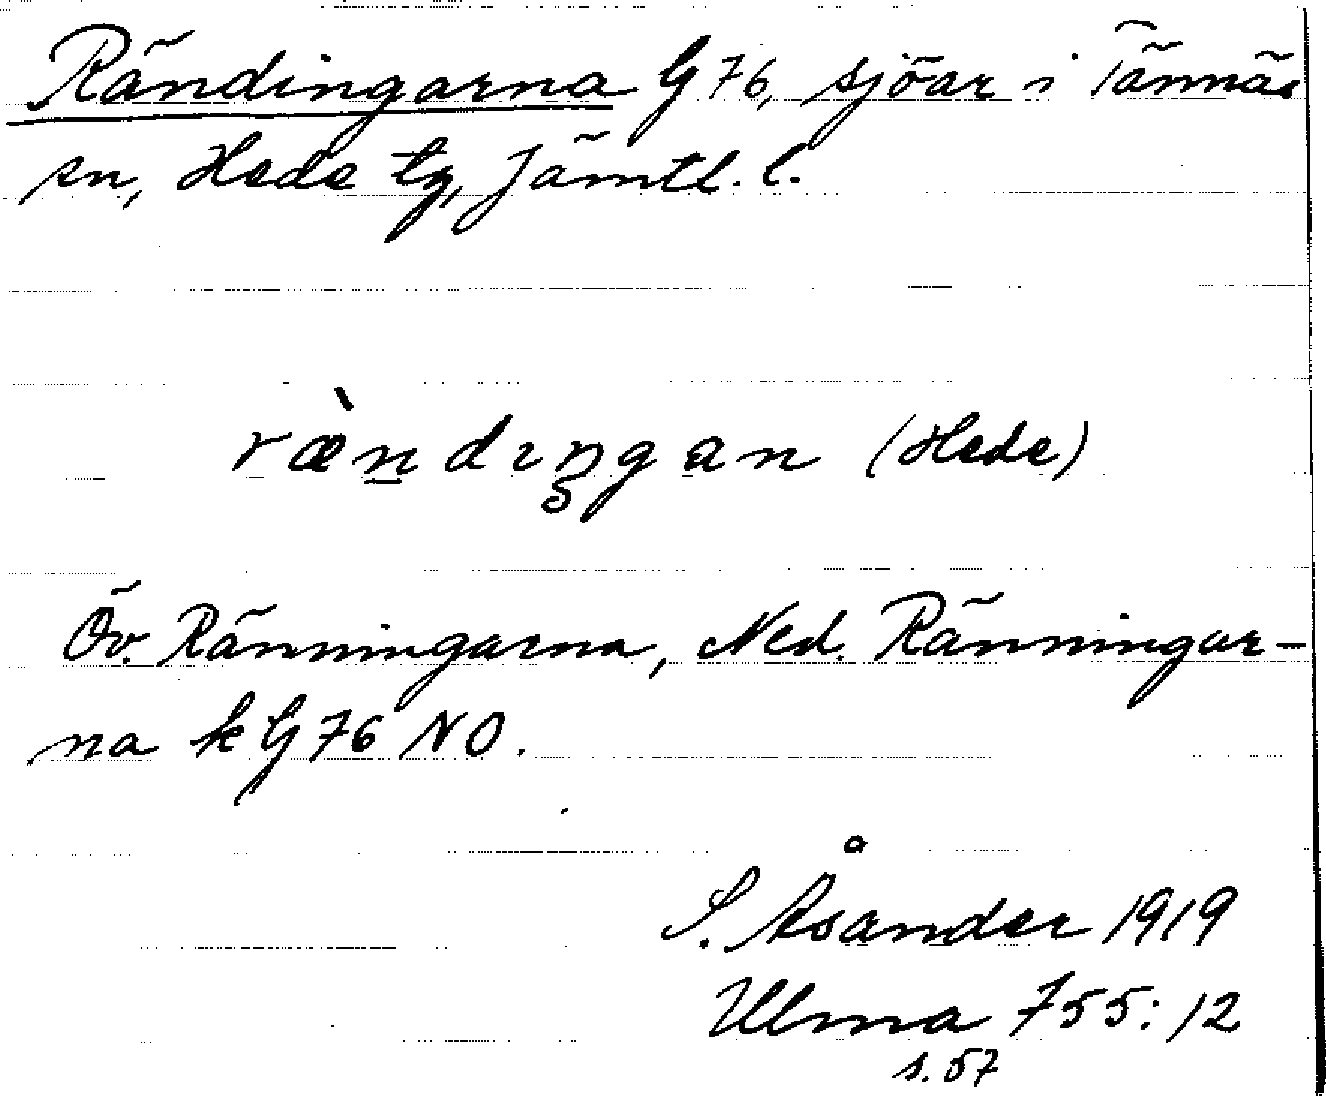 Rändingarna G 76, sjöar i Tännäs
sn, Hede tg, Jämtl. l.
ræ̀ndıŋgan (Hede)
Öv. Ränningarna, Ned. Ränningar-
na k G 76 NO.
S. Åsander 1919
Ulma 755:12
s. 57